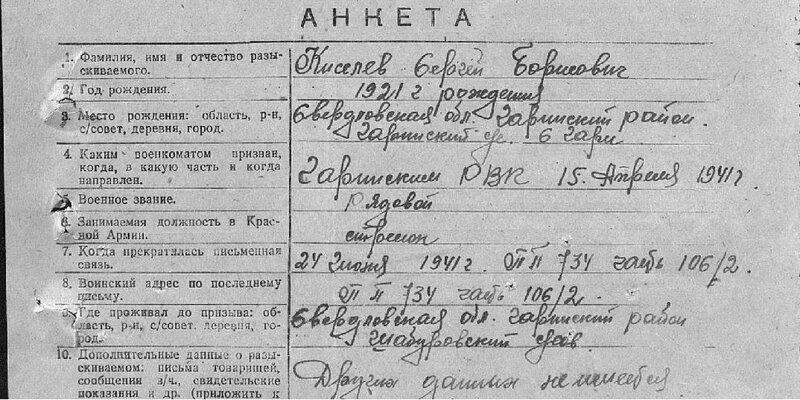 АНКЕТА
1. Фамилия, имя и отчество разы-
скиваемого.
Киселев Сергей Борисович
2. Год рождения.
1921 г рождения
3. Место рождения: область, р-н,
с/совет, деревня, город.
Свердловская обл. Гаринский район.
Гаринский с/с. с Гари
4. Каким военкоматом призван,
когда, в какую часть и когда
направлен.
Гаринским РВК 15. Апреля 1941 г
5. Военное звание.
Рядовой
6. Занимаемая должность в Крас-
ной Армии.
стрелок
7. Когда прекратилась письменная
связь.
24 Июня 1941 г. ПП 734 часть 106/2.
8. Воинский адрес по последнему
письму.
ПП 734 часть 106/2.
9. Где проживал до призыва: об-
ласть, р-н, с/совет. деревня, го-
род.
Свердловская обл. Гаринский район
Шабуровский
10. Дополнительные данные о разы-
скиваемом: письма товарищей,
сообщения з/ч., свидетельские
показания и др. (приложить к
Других данных не имеется